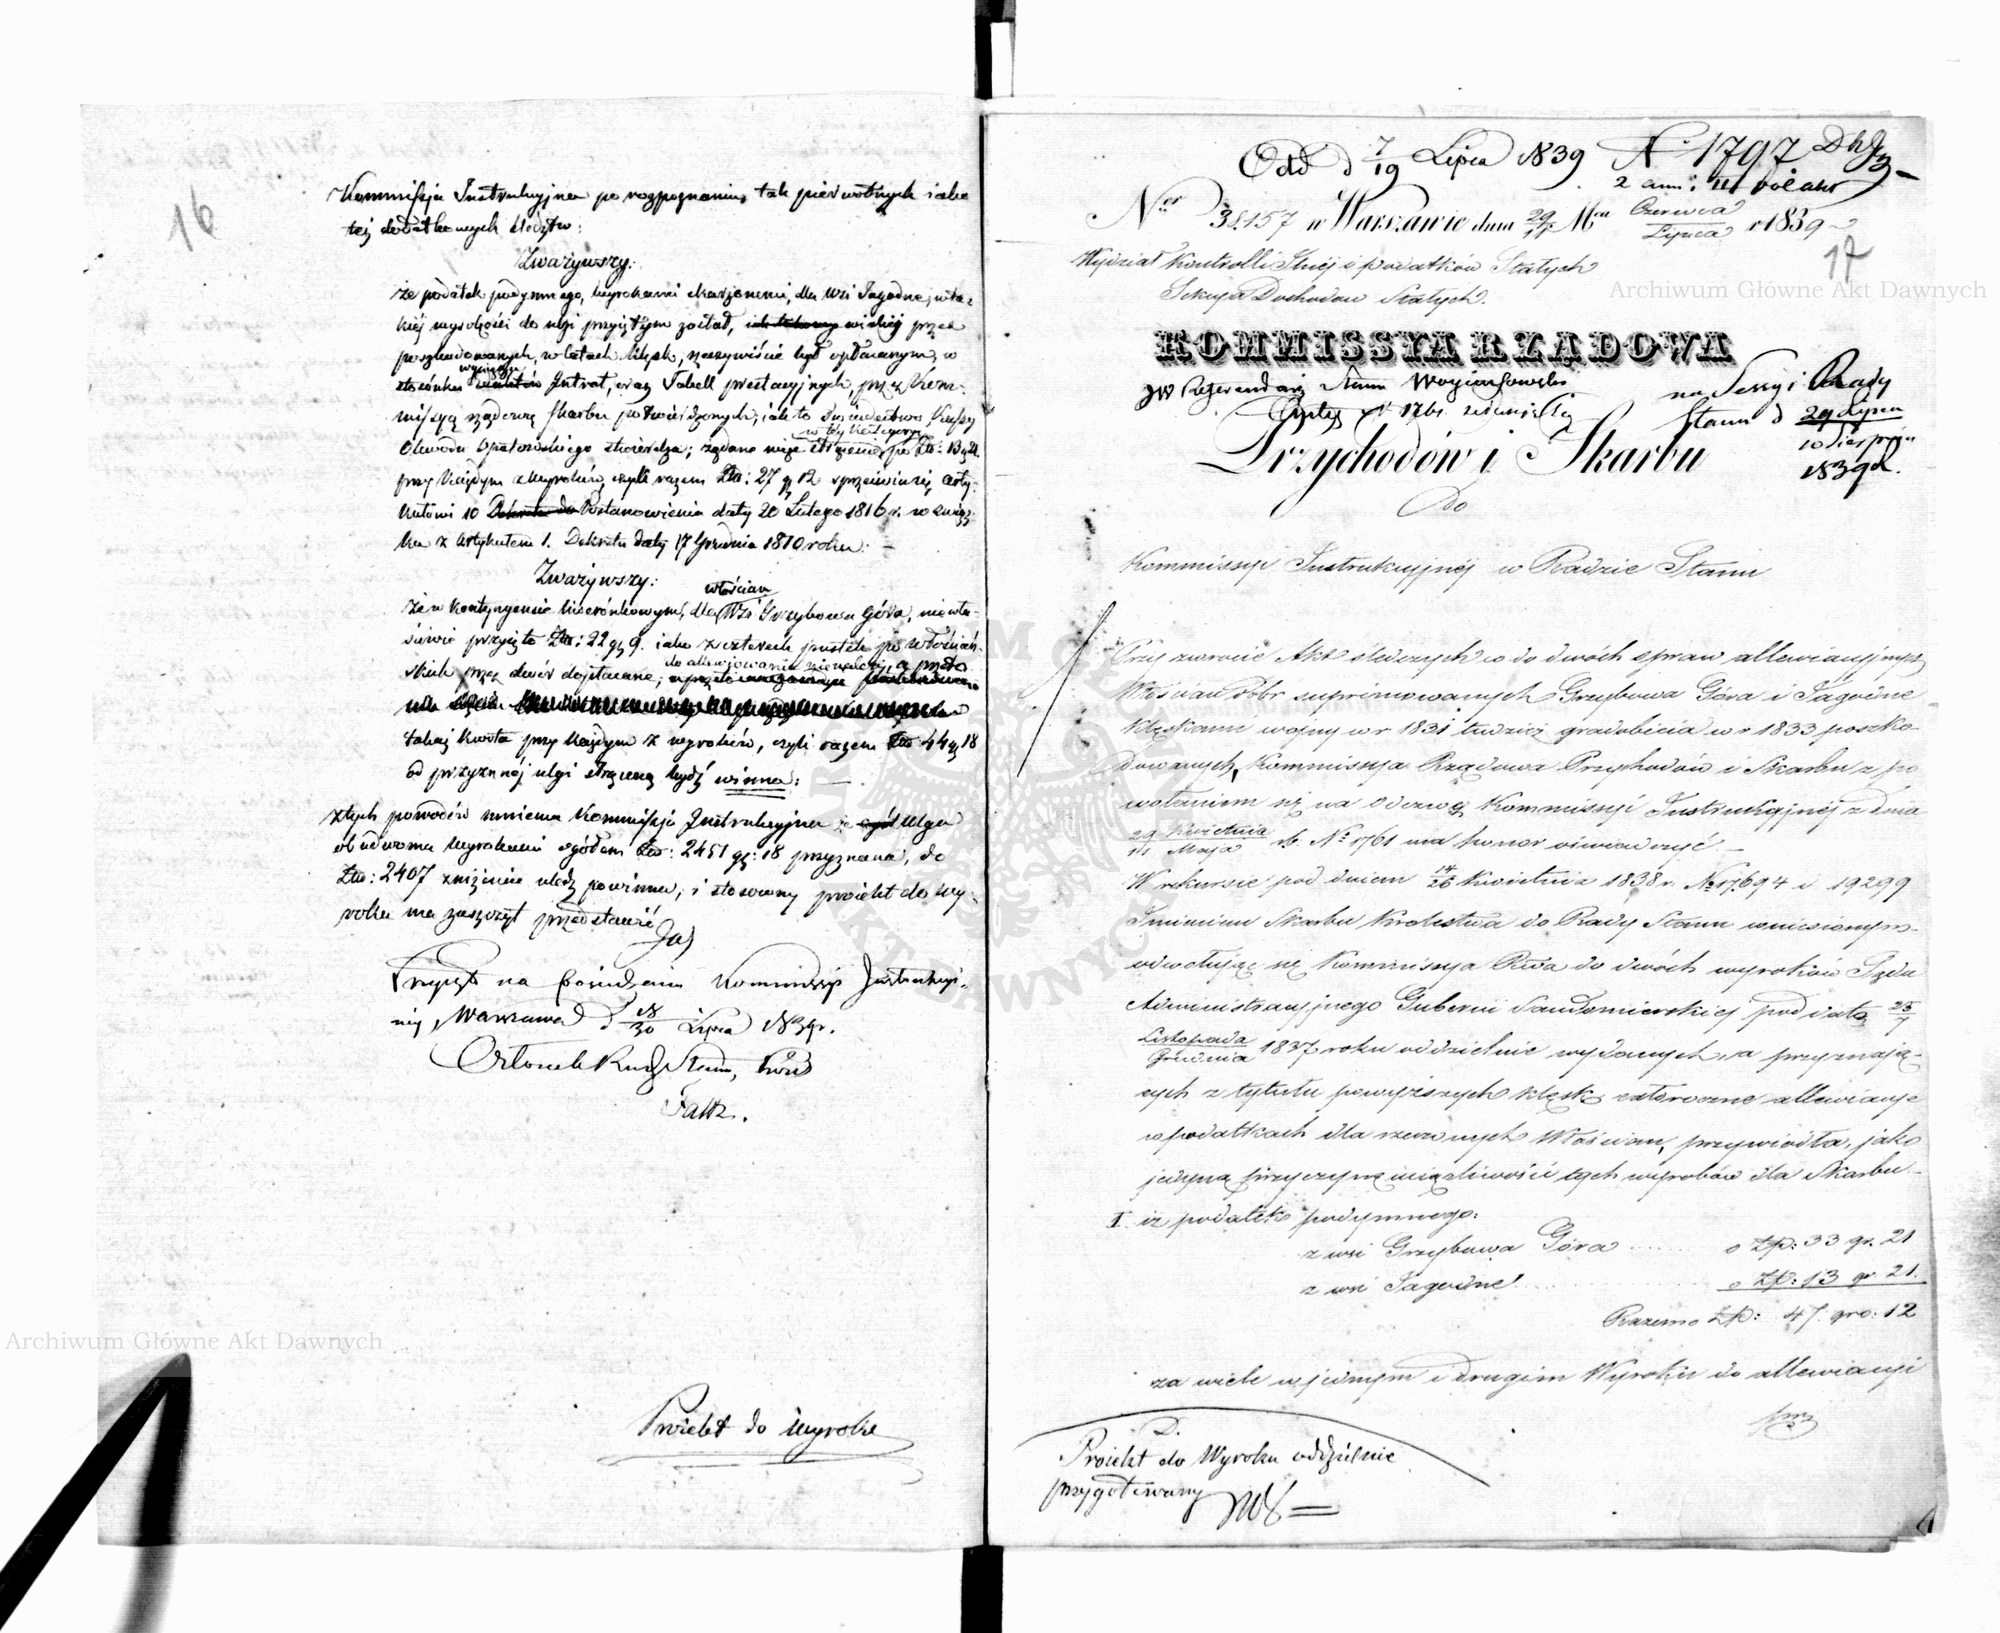 16
Kommissja Instrukcyjna po rozpoznaniu, tak pierwotnych iako
też dodatkowych śledztw:
Zważywszy:
że podatek podymnego, wyrokami skarżonemi, dla Wsi Jagodne, w ta-
kiéj wysokości do ulgi przyiętym został, w iakiéj przez
poszkodowanych, w latach klęsk, rzeczywiście był opłacanym, w
stosunku wyciągu Intrat, oraz Tabell prestacyjnych, przez Kom-
missyą rządową Skarbu potwierdzonych, iak to świadectwo Kassy
Obwodu Opatowskiego stwierdza; żądane więc w téj kategoryi strącenie po Złt: 13 g 21
przy każdym z wyroków, czyli razem Złt: 27 g 12 sprzeciwia się Arty-
kułowi 10 Postanowienia daty 20 Lutego 1816 r. w związ-
ku z Artykułem 1. Dekretu daty 17 Grudnia 1810 roku: —
Zważywszy:
że w kontyngensie liwerunkowym, dla włościan Wsi Grzybowa Góra, niewła-
ściwie przyięto Złt: 22 g 9. iako z czterech pustek po włościań-
skich przez dwór dopłacane, do allewjowania nienależy, a przeto
takaż kwota przy każdym z wyroków, czyli razem Złt 44 g 18
od przyznanéj ulgi strąconą bydź winna: —
Z tych powodów mniema Kommissja Instrukcyjna że Ulga
obudwoma wyrokami ogółem Złt: 2451 g: 18 przyznana, do
Złt: 2407 zniżenie uledz powinna, i stosowny proiekt do wy-
roku ma zaszczyt przedstawić
Przyięto na Posiedzeniu Kommissyi Instrukcyi-
néj, Warszawa d 18/30 Lipca 1839 r.
Członek Rady Stanu,
Faltz.
Proiekt do Wyroku
Odd d 7/19 Lipca 1839 N 1797
2 ann: et vol akt
Ner 38157 w Warszawie dnia 29/11 Mca Czerwca/Lipca r 1839
17
Wydział Kontrolli Służéj i podatków Stałych
Sekcya Dochodów Stałych.
KOMMISSYA RZĄDOWA
JW Referendarz Stanu Woyciechowski
na Sessyi Rady
Stanu d 29 Lipca
10 Sierpnia
1839 r.
Przychodów i Skarbu
do
Kommissyi Instrukcyjnéj w Radzie Stanu
Przy zwrocie Akt śledczych co do dwóch spraw allewiacyjnych
Włościan dóbr suprimowanych Grzybowa Góra i Jagodne
klęskami wojny w r 1831 tudzież gradobicia w r 1833 poszko-
dowanych, Kommissya Rządowa Przychodów i Skarbu z po
wołaniem się na Odezwę Kommissyi Instrukcyjnéj z dnia
29/11 Kwietnia/Maja rb. No 1761 ma honor oświadczyć. —
W rekursie pod dniem 14/26 Kwietnia 1838 r. No 17694 i 19299
Imieniem Skarbu Królestwa do Rady Stanu wniesionym
odwołując się Kommissya Rwa do dwóch wyroków Sądu
Administracyjnego Gubernii Sandomierskiéj pod datą 25/7
Listopada/Grudnia 1837 roku oddzielnie wydanych, a przyznają-
cych z tytułu powyższych klęsk całoroczne allewiacye
w podatkach dla rzeczonych Włościan, przywiodła, jako
jedyną przyczynę uciążliwości tych wyroków dla Skarbu
I. iż podatek podymnego:
z wsi Grzybowa Góra ..... o Złp: 33 gr. 21
z wsi Jagodne ..... o Złp: 13 gr. 21.
Razem o Złp: 47. gro: 12
za wiele w jednym i drugim Wyroku do allewiacyi
D.
Proiekt do Wyroku oddzielnie
przygotowany
Archiwum Główne Akt Dawnych
Archiwum Główne Akt Dawnych